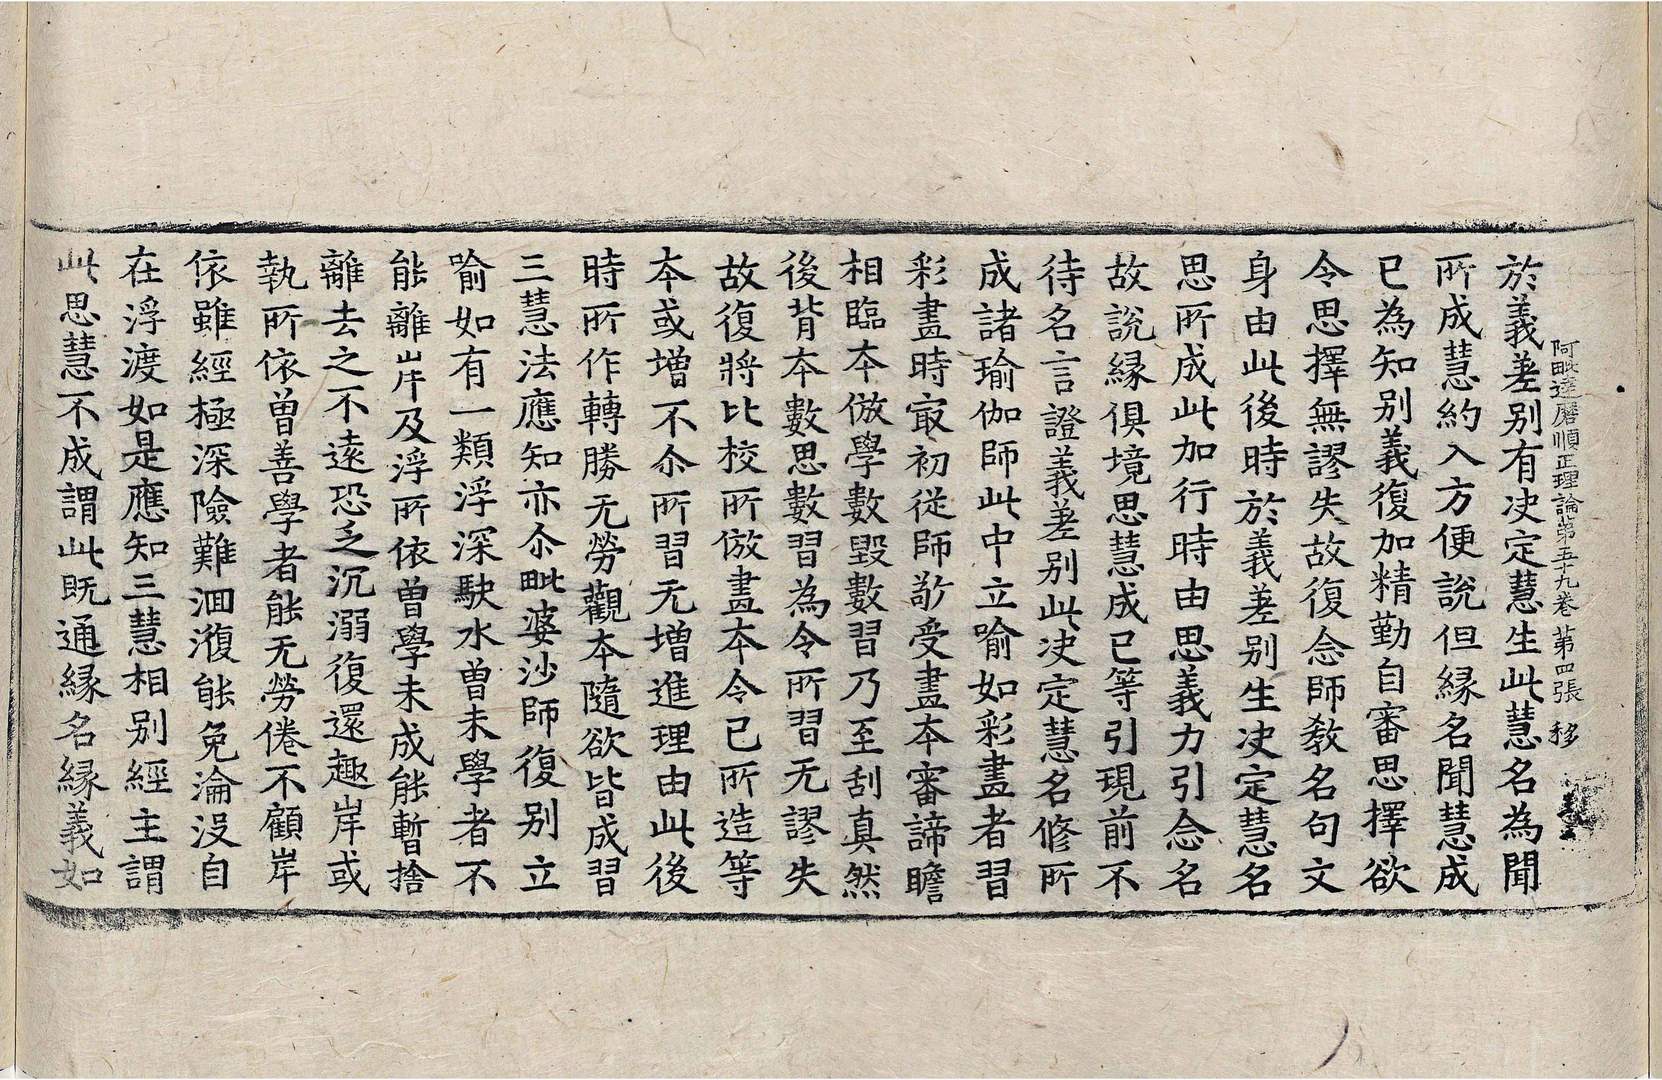 阿毗達磨順正理論第五十九卷 第四張 移
於義差别有决定慧生此慧名為聞
所成慧約入方便說但縁名聞慧成
已為知别義復加精勤自審思擇欲
令思擇無謬失故復念師教名句文
身由此後時於義差别生决定慧名
思所成此加行時由思義力引念名
故說縁俱境思慧成已等引現前不
待名言證義差别此决定慧名修所
成諸瑜伽師此中立喻如彩畫者習
彩畫時㝡初從師敬受畫本審諦瞻
相臨本倣學數毀數習乃至刮真然
後背本數思數習為令所習无謬失
故復將比校所倣畫本令已所造等
本或增不尒所習无增進理由此後
時所作轉勝无勞觀本隨欲皆成習
三慧法應知亦尒毗婆沙師復别立
喻如有一類浮深駃水曽未學者不
能離岸及浮所依曽學未成能暫捨
離去之不遠恐乏沉溺復還趣岸或
執所依曽善學者能无勞倦不顧岸
依雖經極深險難洄澓能免淪沒自
在浮渡如是應知三慧相别經主謂
此思慧不成謂此既通縁名縁義如